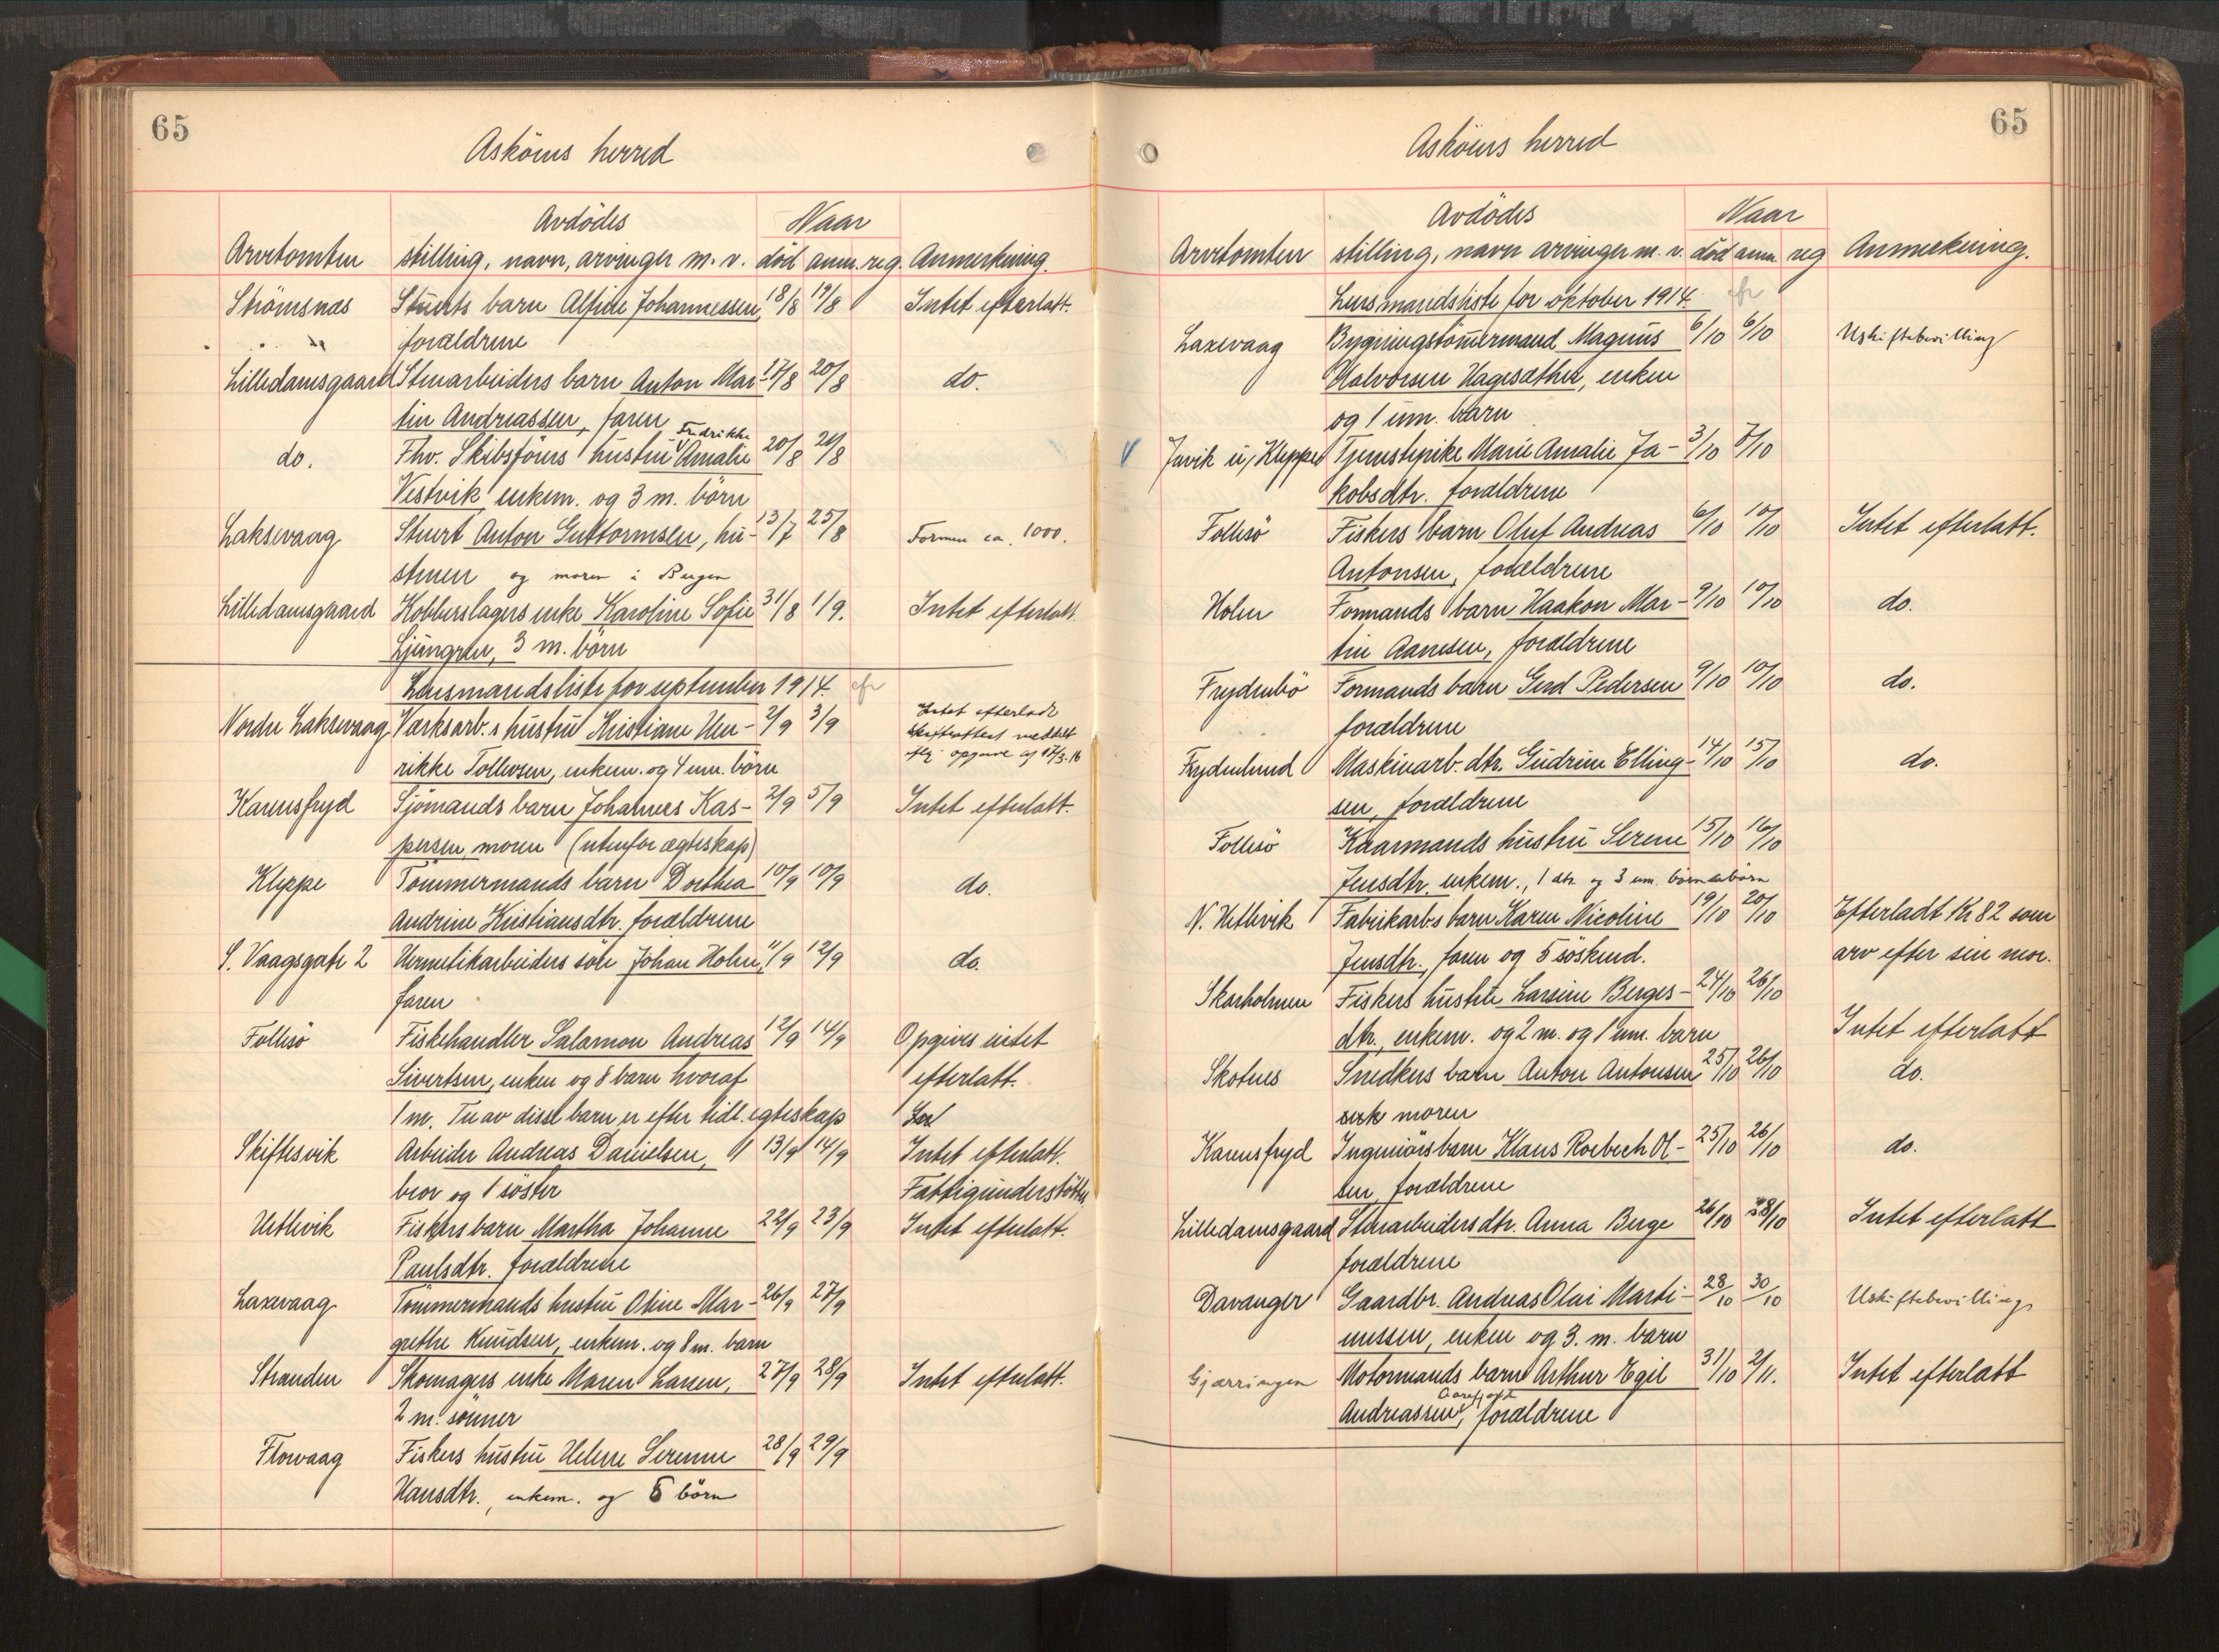 65
Askøens herred
Avdødes Naar
Arvetomten stilling, navn, arvinger m. v. død anm. reg. Anmerkning.
Strömsnæs Stuerts barn Alfine Johannessen, 18/8 19/8 Intet efterlatt.
forældrene
Lilledamsgaard Stenarbeiders barn Anton Mar- 17/8 20/8 do.
tin Andreassen, faren
Fredrikke
do. Fhv. Skibsförers hustru Amalie 20/8 20/8
Vestvik, enkem. og 3 m. börn
Laksevaag Stuert Anton Guttormsen, hu- 13/7 25/8 Formue ca. 1000.
struen og moren i Bergen
Lilledamsgaard Kobberslagers enke Karoline Sofie 31/8 1/9. Intet efterlatt.
Ljungren, 3 m. börn
Lensmandsliste for september 1914. efr
Nordre Laksevaag Værksarb.s hustru Kristiane Hen- 2/9 3/9 Intet efterladt
Skifteattest meddelt
rikke Tollevsen, enkem. og 4 um. börn eftr opgave af 17/3-16
Karensfryd Sjömands barn Johannes Kas- 2/9 5/9 Intet efterlatt.
persen, moren (utenfor ægteskap)
Kleppe Tömmermands barn Dorthea 10/9 10/9 do.
Andrine Kristiansdtr. forældrene
S. Vaagsgate 2 Hermetikarbeiders sön Johan Holm, 11/9 12/9 do.
faren
Follesö Fiskehandler Salamon Andreas 12/9 14/9 Opgives intet
Sivertsen, enken og 8 barn hvoraf efterlatt.
1 m. Tu av disse barn er efter tidl. egteskap
Skiftesvik Arbeider Andreas Danielsen, 1 13/9 14/9 Intet efterlatt.
bror og 1 söster Fattigunderstöttet
Hetlevik Fiskers barn Martha Johanne 22/9 23/9 Intet efterlatt.
Paulsdtr. forældrene
Laxevaag Tömmermands hustru Oline Mar- 26/9 27/9
grethe Knudsen, enkem. og 8 m. barn
Stranden Skomagers enke Maren Larsen, 27/9 28/9 Intet efterlatt.
2 m. sönner
Florvaag Fiskers hustru Helene Serene 28/9 29/9
Hansdtr., enkem. og 6 börn
65
Askøens herred
Avdødes Naar
Arvetomten stilling, navn arvinger m. v. død anm. reg Anmerkning.
Lensmandsliste for oktober 1914. efr
Laxevaag Bygningstömmermand Magnus 6/10 6/10 Uskiftebevilling
Halvorsen Hagesæther, enken
og 1 um. barn
V Juvik u/ Kleppe Tjenestepike Marie Amalie Ja- 3/10 7/10
kobsdtr. forældrene
Follesö Fiskers barn Oluf Andreas 6/10 10/10 Intet efterlatt.
Antonsen, forældrene
Holen Formands barn Haakon Mar- 9/10 10/10 do.
tin Aamesen, forældrene
Frydenbö Formands barn Gerd Pedersen 9/10 10/10 do.
forældrene
Frydenlund Maskinarb. dtr. Gudrun Elling- 14/10 15/10 do.
sen, forældrene
Follesö Kaarmands hustru Serene 15/10 16/10
Jensdtr. enkem., 1 dtr. og 3 um. börnebörn
N. Hetlevik Fabrikarb.s barn Karen Nicoline 19/10 20/10 Efterladt Kr 82 som
Jensdtr., faren og 5 söskend. arv efter sin mor.
Skarholmen Fiskers hustru Larsine Berges- 24/10 26/10
dtr., enkem. og 2 m. og 1 um. barn Intet efterlatt
Skotnes Snedkers barn Anton Antonsen 25/10 26/10 do.
moren
Karensfryd Ingeniörs barn Klaus Roebech Ol- 25/10 26/10 do.
sen, forældrene
Lilledamsgaard Stenarbeiders dtr. Anna Berge 26/10 28/10 Intet efterlatt
forældrene
Davanger Gaardbr. Andreas Olai Marti- 28/10 30/10 Uskiftebevilling
nussen, enken og 3. m. barn
Gjærringen Motormands barn Arthur Egil 31/10 2/11. Intet efterlatt
Andreassen, forældrene